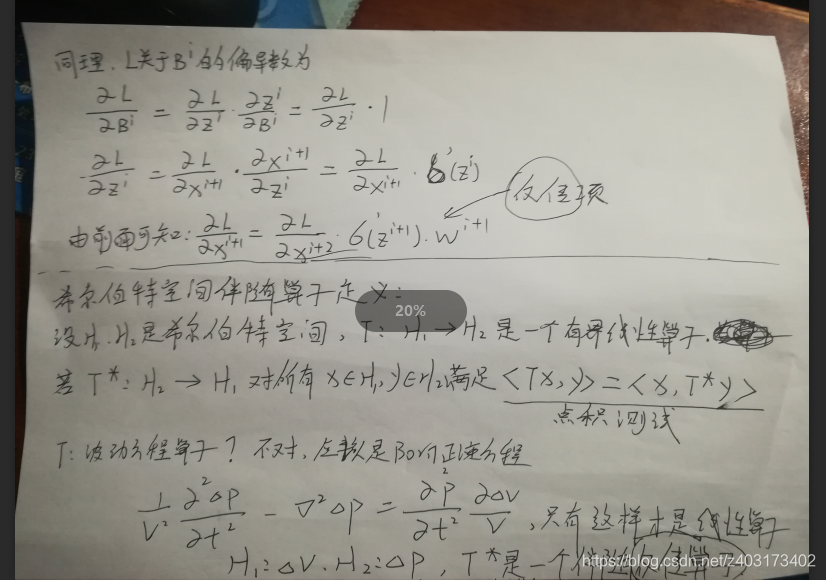 同理、L关于Bⁱ的偏导数为
∂L/∂Bⁱ = ∂L/∂zⁱ · ∂zⁱ/∂Bⁱ = ∂L/∂zⁱ · 1
∂L/∂zⁱ = ∂L/∂xⁱ⁺¹ · ∂xⁱ⁺¹/∂zⁱ = ∂L/∂xⁱ⁺¹ · б'(zⁱ)
反传项
由前面可知: ∂L/∂xⁱ⁺¹ = ∂L/∂xⁱ⁺² · б'(zⁱ⁺¹) · wⁱ⁺¹
希尔伯特空间伴随算子定义:
20%
设H₁.H₂是希尔伯特空间, T: H₁→H₂是一个有界线性算子.
若 T*: H₂→H₁ 对所有 x∈H₁, y∈H₂满足 <Tx, y> = <x, T*y>
点积测试
T: 波动方程算子? 不对, 应该是Born正演方程
1/V² ∂²ΔP/∂t² - ∇²ΔP = ∂²P/∂t² 2ΔV/V , 只有这样才是线性算子
H₁: ΔV. H₂: ΔP, T*是一个伴随
https://blog.csdn.net/z403173402